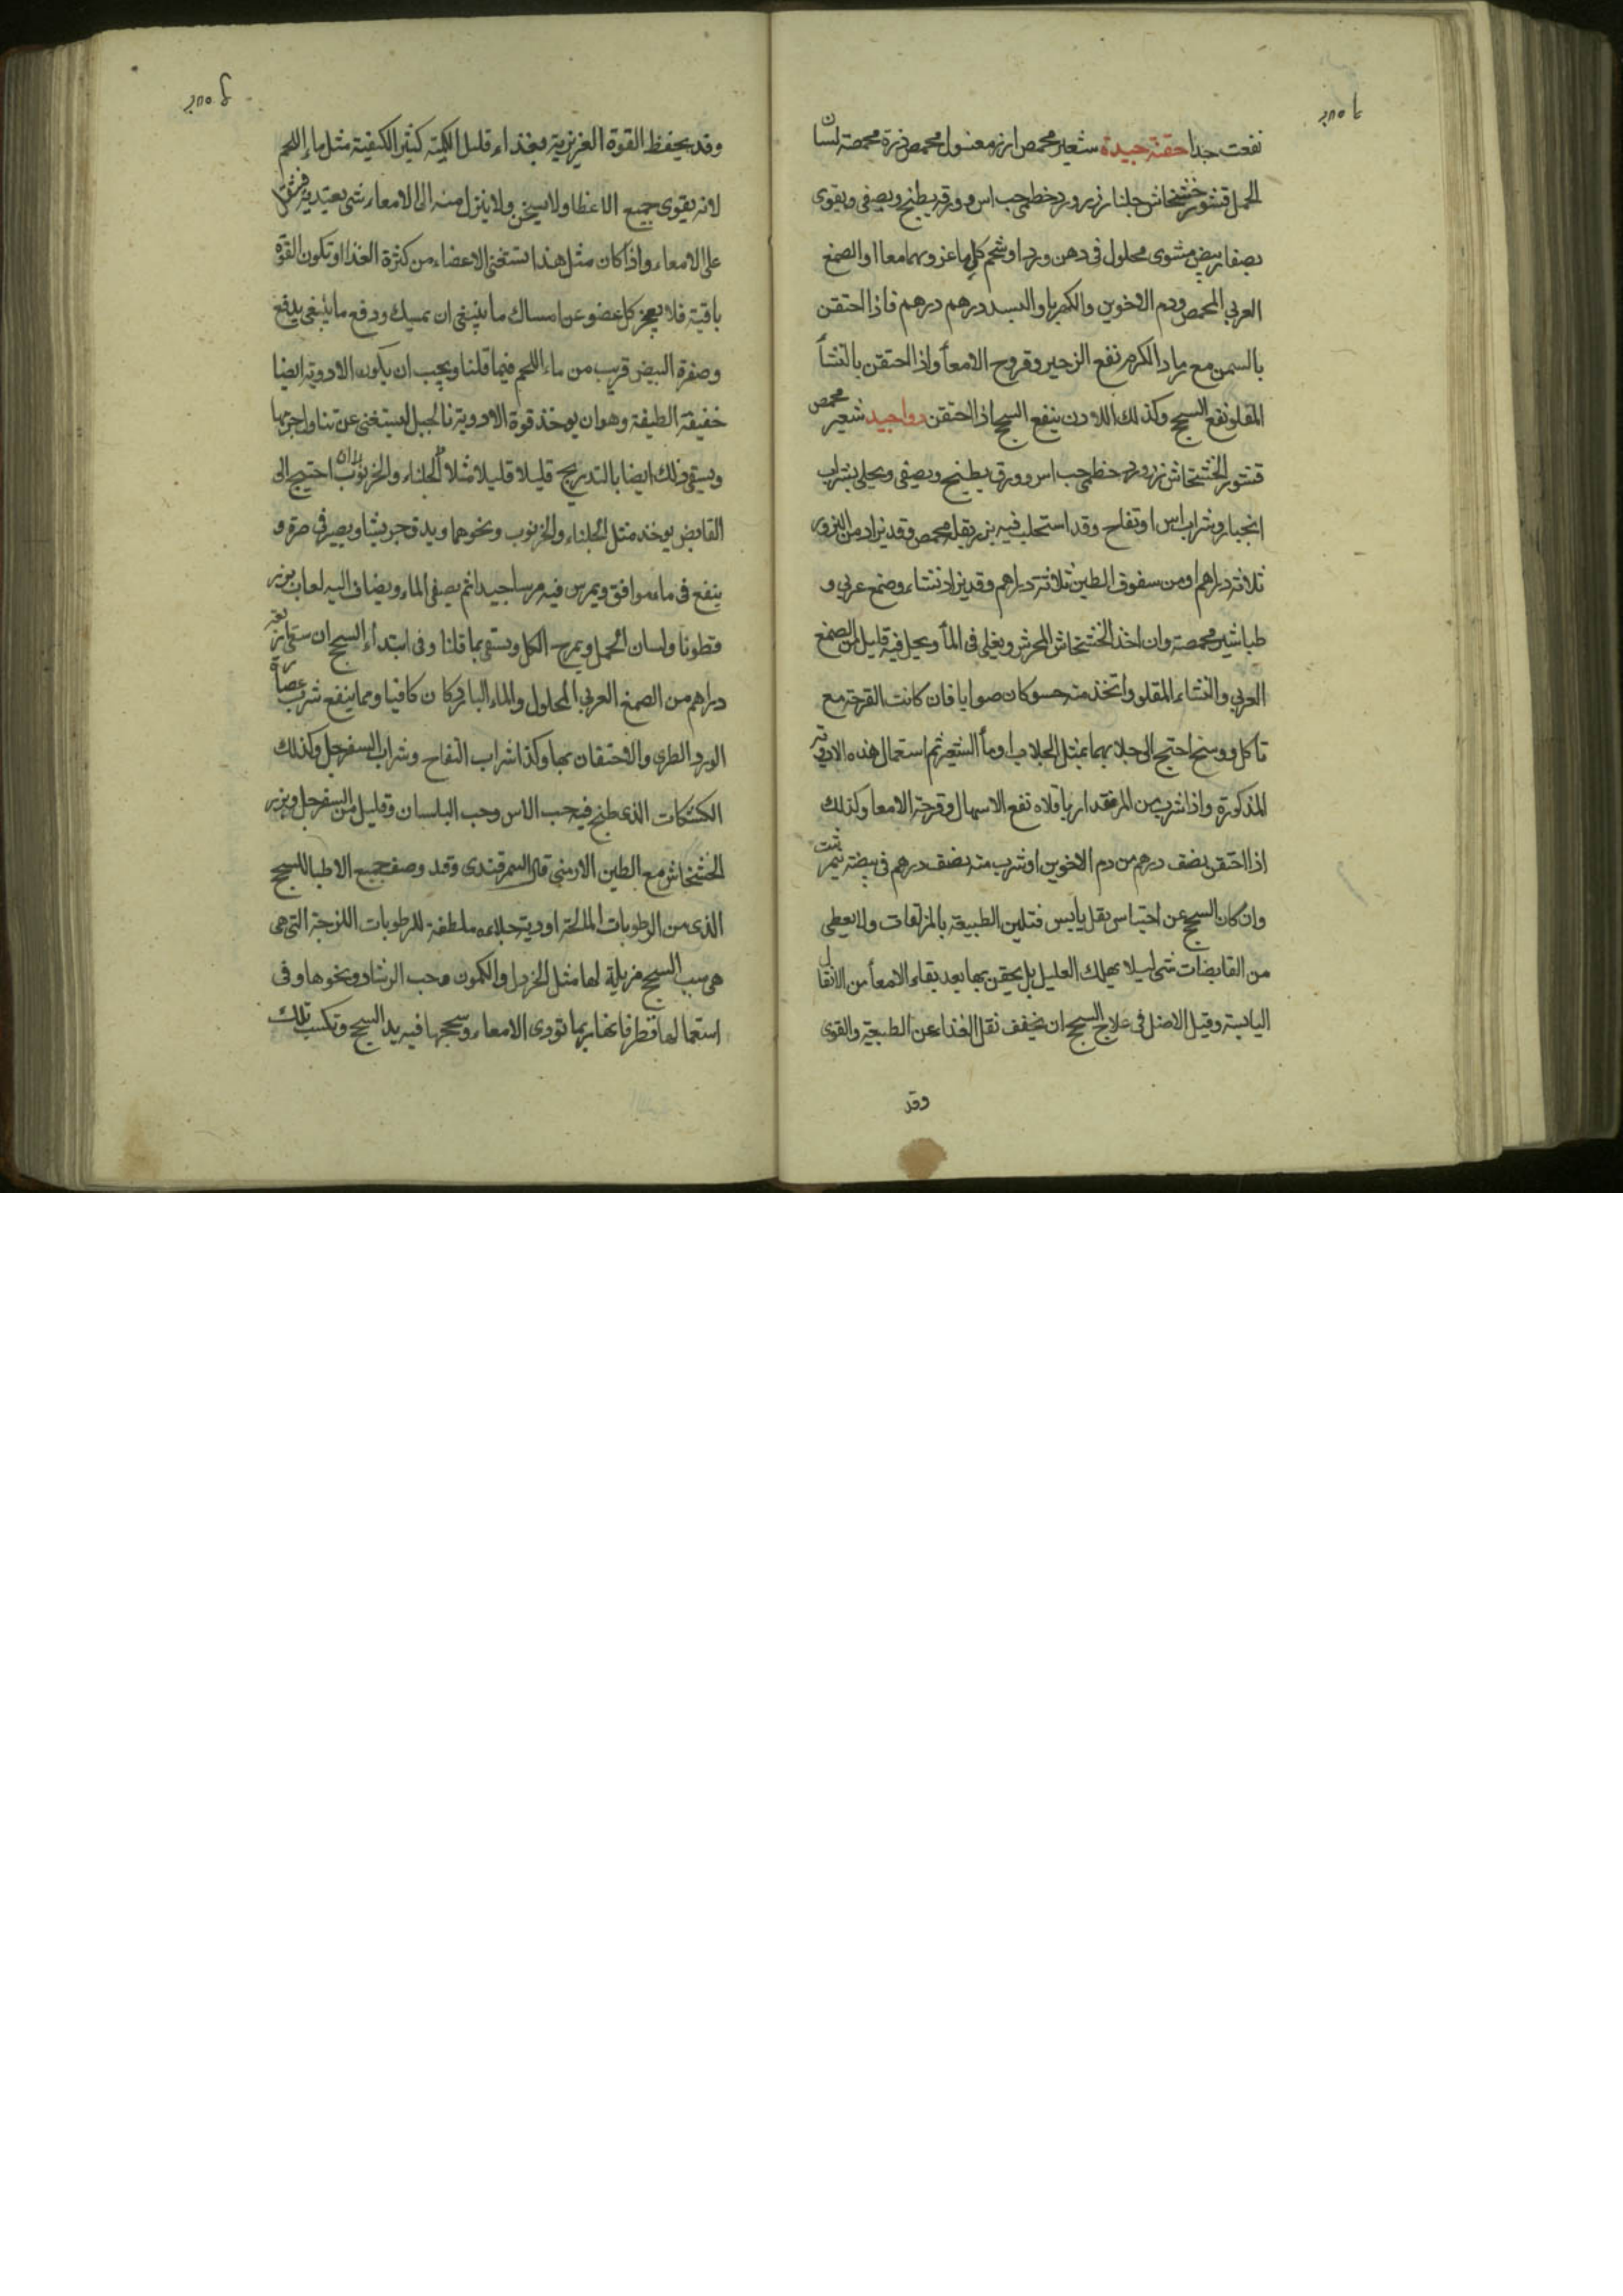 نفعت جدا حقنة جيدة شعير محمص ارز مغسول محمص ذرة محمصة لسان
الحمل قشور خشخاش جلنار زر ورد خطمى حب اس وورقه يطبخ ويصفى ويقوى
بصفار بيض مشوى محلول فى دهن ورد او شحم كلى ماعز وبهما معا او الصمغ
العربي المحمص ودم الاخوين والكهربا والبسد درهم درهم فاذا احتقن
بالسمن مع رماد الكرم نفع الزحير وقروح الامعآ واذا احتقن بالنشآ
المقلو نفع السحج وكذلك اللادن ينفع السحج اذا احتقن دوا جيد شعير محمص
قشور الخشخاش زر ورد خطمى حب اس وورق يطبخ ويصفى ويحلى بشراب
انجبار وشراب اس او تفاح وقد استحلب فيه بزر بقلة محمص وقد يزاد من البزور
ثلاثة دراهم او من سفوف الطين ثلاثة دراهم وقد يزاد نشاء وصمغ عربي و
طباشير محمصة وان اخذ الخشخاش المجرش ويغلى فى المآ ويحل فيه قليل من الصمغ
العربي والنشاء المقلو واتخذ منه حسو كان صوابا فان كانت القرحة مع
تاكل ووسخ احتيج الى جلابهما بمثل الجلاب او مآ الشعير ثم استعمال هذه الادوية
المذكورة واذا شرب من المر مقدار باقلاه نفع الاسهال وقرحة الامعا وكذلك
اذا احتقن بنصف درهم من دم الاخوين او شرب منه بنصف درهم فى بيضة نيمرشت
وان كان السحج عن احتباس ثقل يابس فتلين الطبيعة بالمزلقات ولا يعطى
من القابضات شى ليلا يهلك العليل بل يحقن بها بعد نقاء الامعآ من الاثقال
اليابسة وقيل الاصل فى علاج السحج ان يخفف ثقل الغذا عن الطبيعة والقوى
وقد
وقد يحفظ القوة الغريزية بغذاء قليل الكمية كثير الكيفية مثل ماء اللحم
لانه يقوى جميع الاعظا ولا يسخن ولا ينزل منه الى الامعاء شى يعتد به
على الامعاء واذا كان مثل هذا تستغنى الاعضاء من كثرة الغذا وتكون القوة
باقية فلا يعجز كل عضو عن امساك ما ينبغى ان يمسك ودفع ما ينبغى يدفع
وصفرة البيض قريب من ماء اللحم فيما قلنا ويجب ان يكون الادوية ايضا
خفيفة الطيفة وهو ان يوخذ قوة الادوية بالحيل ليستغنى عن تناول جرمها
ويسقى ذلك ايضا بالتدريج قليلا قليلا مثلا الجلناء والخرنوب ان احتيج الى
القابض يوخذ مثل الجلناء والخرنوب ونحوهما ويدق جريشا ويصير فى صرة و
ينقع فى ماء موافق ويمرس فيه مرسا جيدا ثم يصفى الماء ويضاف اليه لعاب بزر
قطونا ولسان الحمل ويمزج الكل ويسقى بما قلنا وفى ابتدآء السحج ان سقى اربعة
دراهم من الصمغ العربي المحلول والماء البارد كان كافيا ومما ينفع شرب عصارة
الورد الطرى والاحتقان بها وكذا شراب التفاح وشراب السفرجل وكذلك
الكشكات الذى طبخ فيه حب الاس وحب البلسان وقليل من السفرجل وبزر
الخشخاش مع الطين الارمنى قال السمرقندى وقد وصف جميع الاطبا للسحج
الذى من الرطوبات المالحة ادوية جلاءه ملطفة للرطوبات اللزجة التى هى
هى سبب السحج مزيلة لها مثل الخردل والكمون وحب الرشاد ونحوها وفى
استعمالها فظر فانها ربما تودى الامعاء وسحجها فيزيد السحج وتكسب تلك